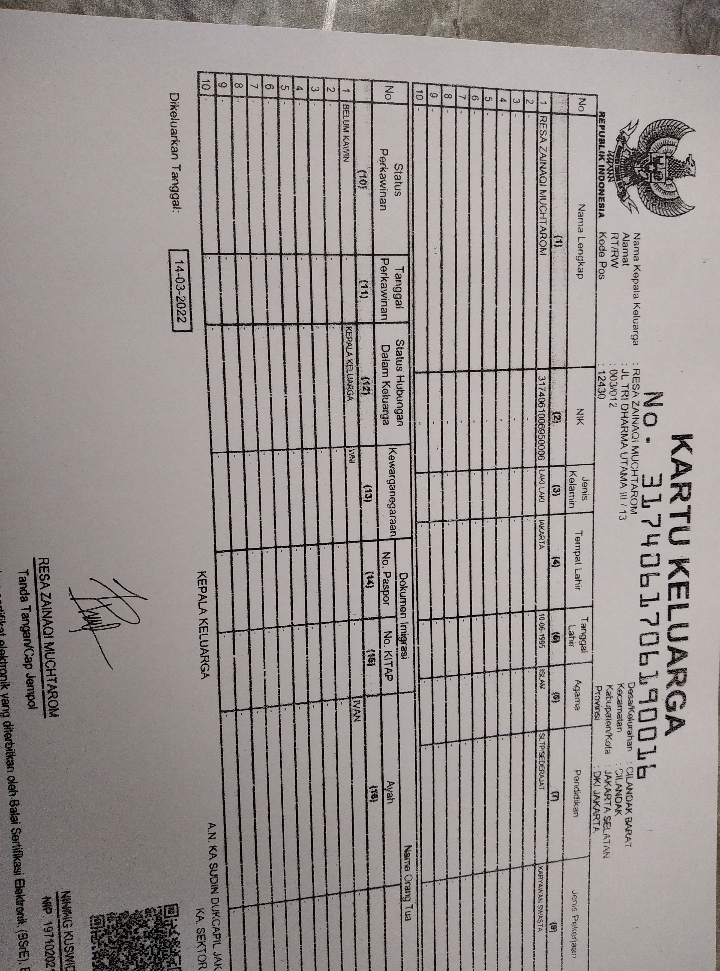 KARTU KELUARGA
No. 3174061706190016
REPUBLIK INDONESIA
Nama Kepala Keluarga : RESA ZAINAQI MUCHTAROM
Alamat : JL. TRI DHARMA UTAMA III / 13
RT/RW : 003/012
Kode Pos : 12430
Desa/Kelurahan : CILANDAK BARAT
Kecamatan : CILANDAK
Kabupaten/Kota : JAKARTA SELATAN
Provinsi : DKI JAKARTA
No Nama Lengkap NIK Jenis Kelamin Tempat Lahir Tanggal Lahir Agama Pendidikan Jenis Pekerjaan
(1) (2) (3) (4) (5) (6) (7) (8)
1 RESA ZAINAQI MUCHTAROM 3174061006950006 LAKI-LAKI JAKARTA 10-06-1995 ISLAM SLTP/SEDERAJAT KARYAWAN SWASTA
2
3
4
5
6
7
8
9
10
No Status Perkawinan Tanggal Perkawinan Status Hubungan Dalam Keluarga Kewarganegaraan Dokumen Imigrasi Nama Orang Tua
No. Paspor No. KITAP Ayah
(10) (11) (12) (13) (14) (15) (16)
1 BELUM KAWIN KEPALA KELUARGA WNI IVAN
2
3
4
5
6
7
8
9
10
Dikeluarkan Tanggal: 14-03-2022
KEPALA KELUARGA
A.N. KA SUDIN DUKCAPIL JAK
KA. SEKTOR
RESA ZAINAQI MUCHTAROM
Tanda Tangan/Cap Jempol
NINING KUSWID
NIP. 19710202
elektronik yang diterbitkan oleh Balai Sertifikasi Elektronik (BSrE),